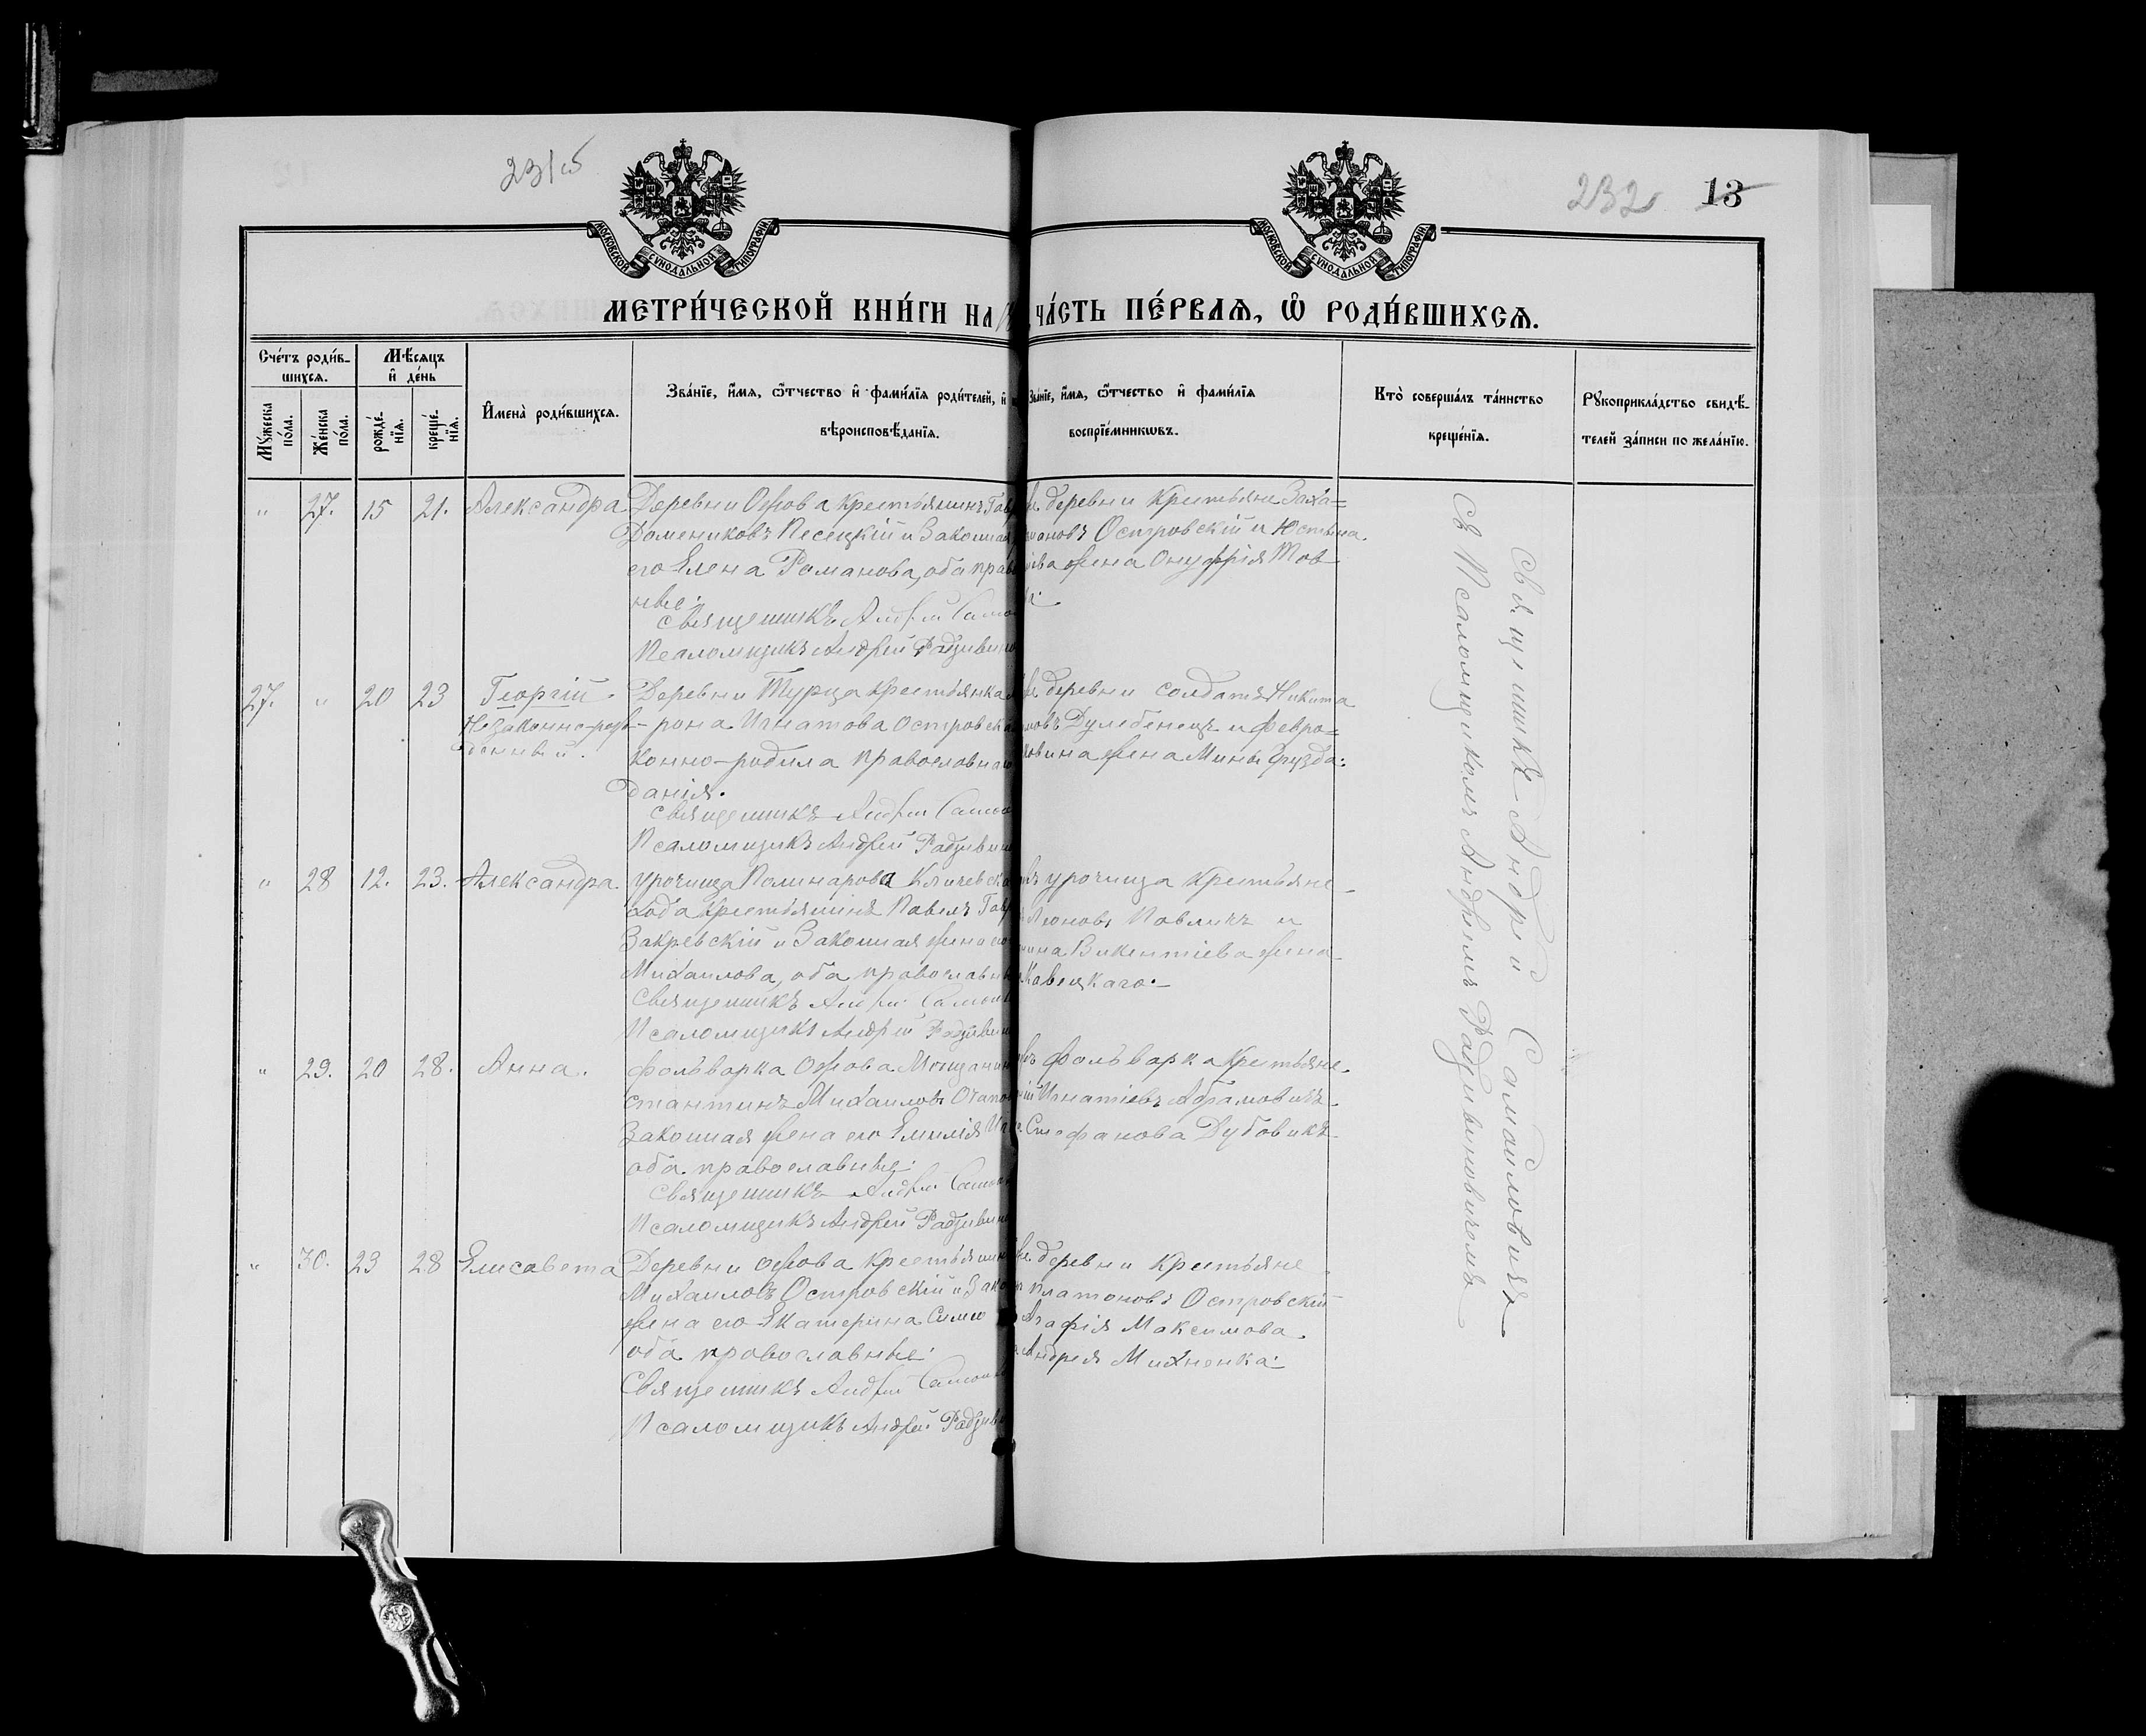 231об
232 13
МОСКОВСКОЙ СѴНОДАЛЬНОЙ ТИПОГРАФІИ
МОСКОВСКОЙ СѴНОДАЛЬНОЙ ТИПОГРАФІИ
МЕТРИ́ЧЕСКОЙ КНИ́ГИ НА ЧА́СТЬ ПЕ́РВАѦ, Ѡ҆ РОДИ́ВШИХСѦ.
Сче́тъ роди́вшихсѧ.
Мѣ́сѧцъ и҆ де́нь
Мꙋ́жеска по́ла.
Же́нска по́ла.
рожде́нїѧ.
креще́нїѧ.
И҆мена̀ роди́вшихсѧ.
Зва́нїе, и҆́мѧ, ѻ҆́тчество и҆ фами́лїѧ роди́телей, и҆
вѣроисповѣ́данїѧ.
Зва́нїе, и҆́мѧ, ѻ҆́тчество и҆ фами́лїѧ
воспрїе́мникѡвъ.
Кто̀ соверша́лъ та́инство
креще́нїѧ.
Рꙋкоприкла́дство свидѣ́телей за́писи по жела́нїю.
" 27. 15 21. Александра
Деревни Ожова крестьянинъ Гав
Домениковъ Песецкій и Законная
его Елена Романова, оба прав
ные.
Священникъ Андрей Самой
Псаломщикъ Андрей Радзивин
деревни Крестьяне Заха=
мановъ Островскій и Юстина
жена Онуфрія Тов
27. " 20 23 Георгій.
Незаконно-рож-
денный.
Деревни Турца крестьянка
рона Игнатова Островска
конно-родила православнаго
данія.
Священникъ Андрей Самой
Псаломщикъ Андрей Радзивин
деревни солдатъ Никита
мовъ Дулебенецъ и Февро=
жена Мины Груздa.
" 28 12. 23. Александра.
урочища Полинарова Кличевска
хода крестьянинъ Павелъ Гав
Закревскій и Законная жена его
Михаилова, оба православны
Священникъ Андрей Самой
Псаломщикъ Андрей Радзивин
урочища крестьяне
Леоновъ Павликъ и
Викентіева жена
Кавецкаго.
" 29. 20 28. Анна.
фольварка Ожова Мещанин
стантинъ Михаиловъ
Законная жена его Емилія
оба православные.
Священникъ Андрей Самой
Псаломщикъ Андрей Радзивин
фольварка Крестьяне
Игнатіевъ Абрамовичъ
Стефанова Дубовикъ
" 30. 23 28 Елисавета
Деревни Ожова крестьянин
Михаиловъ Островскій и Зако
жена его Екатерина
оба православные.
Священникъ Андрей Самой
Псаломщикъ Андрей Радзив
деревни Крестьяне
Платоновъ Островскій
Агафія Максимова
Андрея Михненка.
Священникъ Андрей Самайловичъ
Съ Псаломщикомъ Андреемъ Радзивиновичемъ